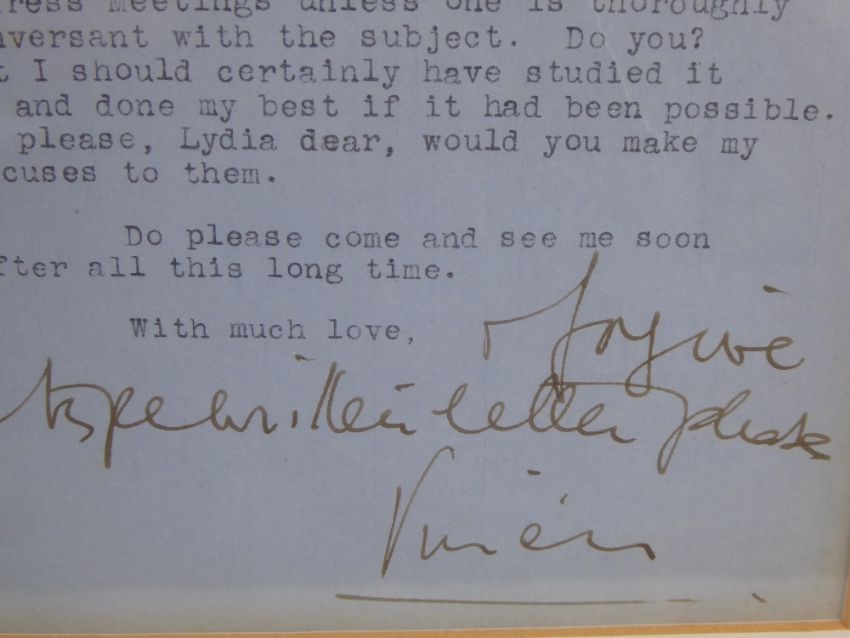 ress Meetings unless one is thoroughly
nversant with the subject. Do you?
t I should certainly have studied it
and done my best if it had been possible.
please, Lydia dear, would you make my
cuses to them.
Do please come and see me soon
fter all this long time.
With much love,
& forgive
typewritten letter please
Vivien